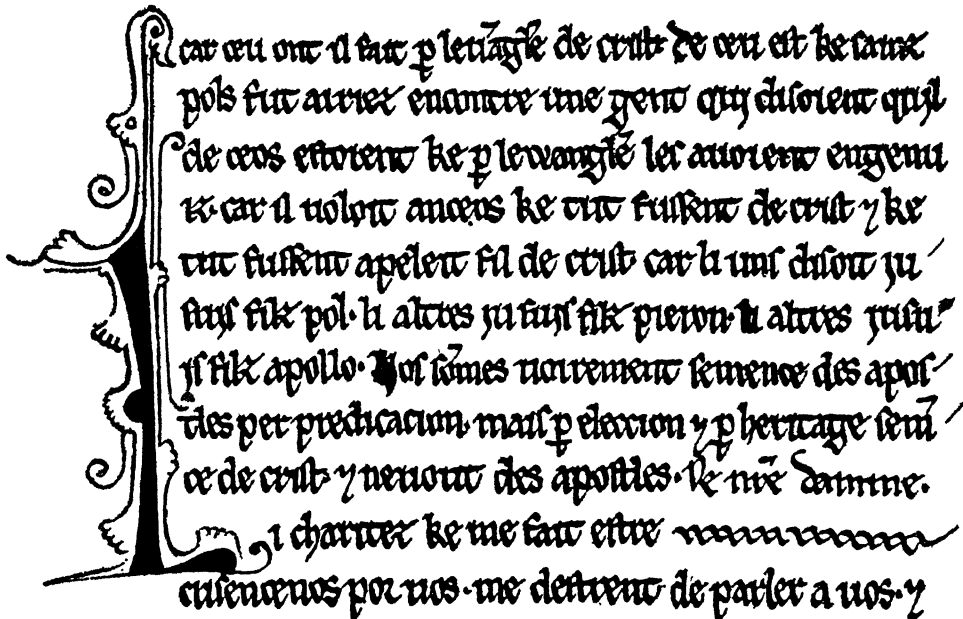 car ceu ont il fait p̲ lewãgle de crist de ceu est ke sainz
pols fut airiez encontre une gent qui disoient quil
de ceos estoient ke p̲ lewanglẽ les auoient engenui
iz. car il uoloit anceos ke tut fussent de crist ⁊ ke
tut fussent apeleit fil de crist car li uns disoit ju
suys filz pol. li altres ju suys filz pieron. li altres ju su
ys filz apollo. Nos sõmes uoirement semence des apos
tles per predicacion. mais p̲ eleccion ⁊ p̲ heritage semẽ
ce de crist. ⁊ neuout des apostles. Ke nr̃e damme.
Li charitez ke me fait estre
cusencenos por uos. me destrent de parler a uos. ⁊